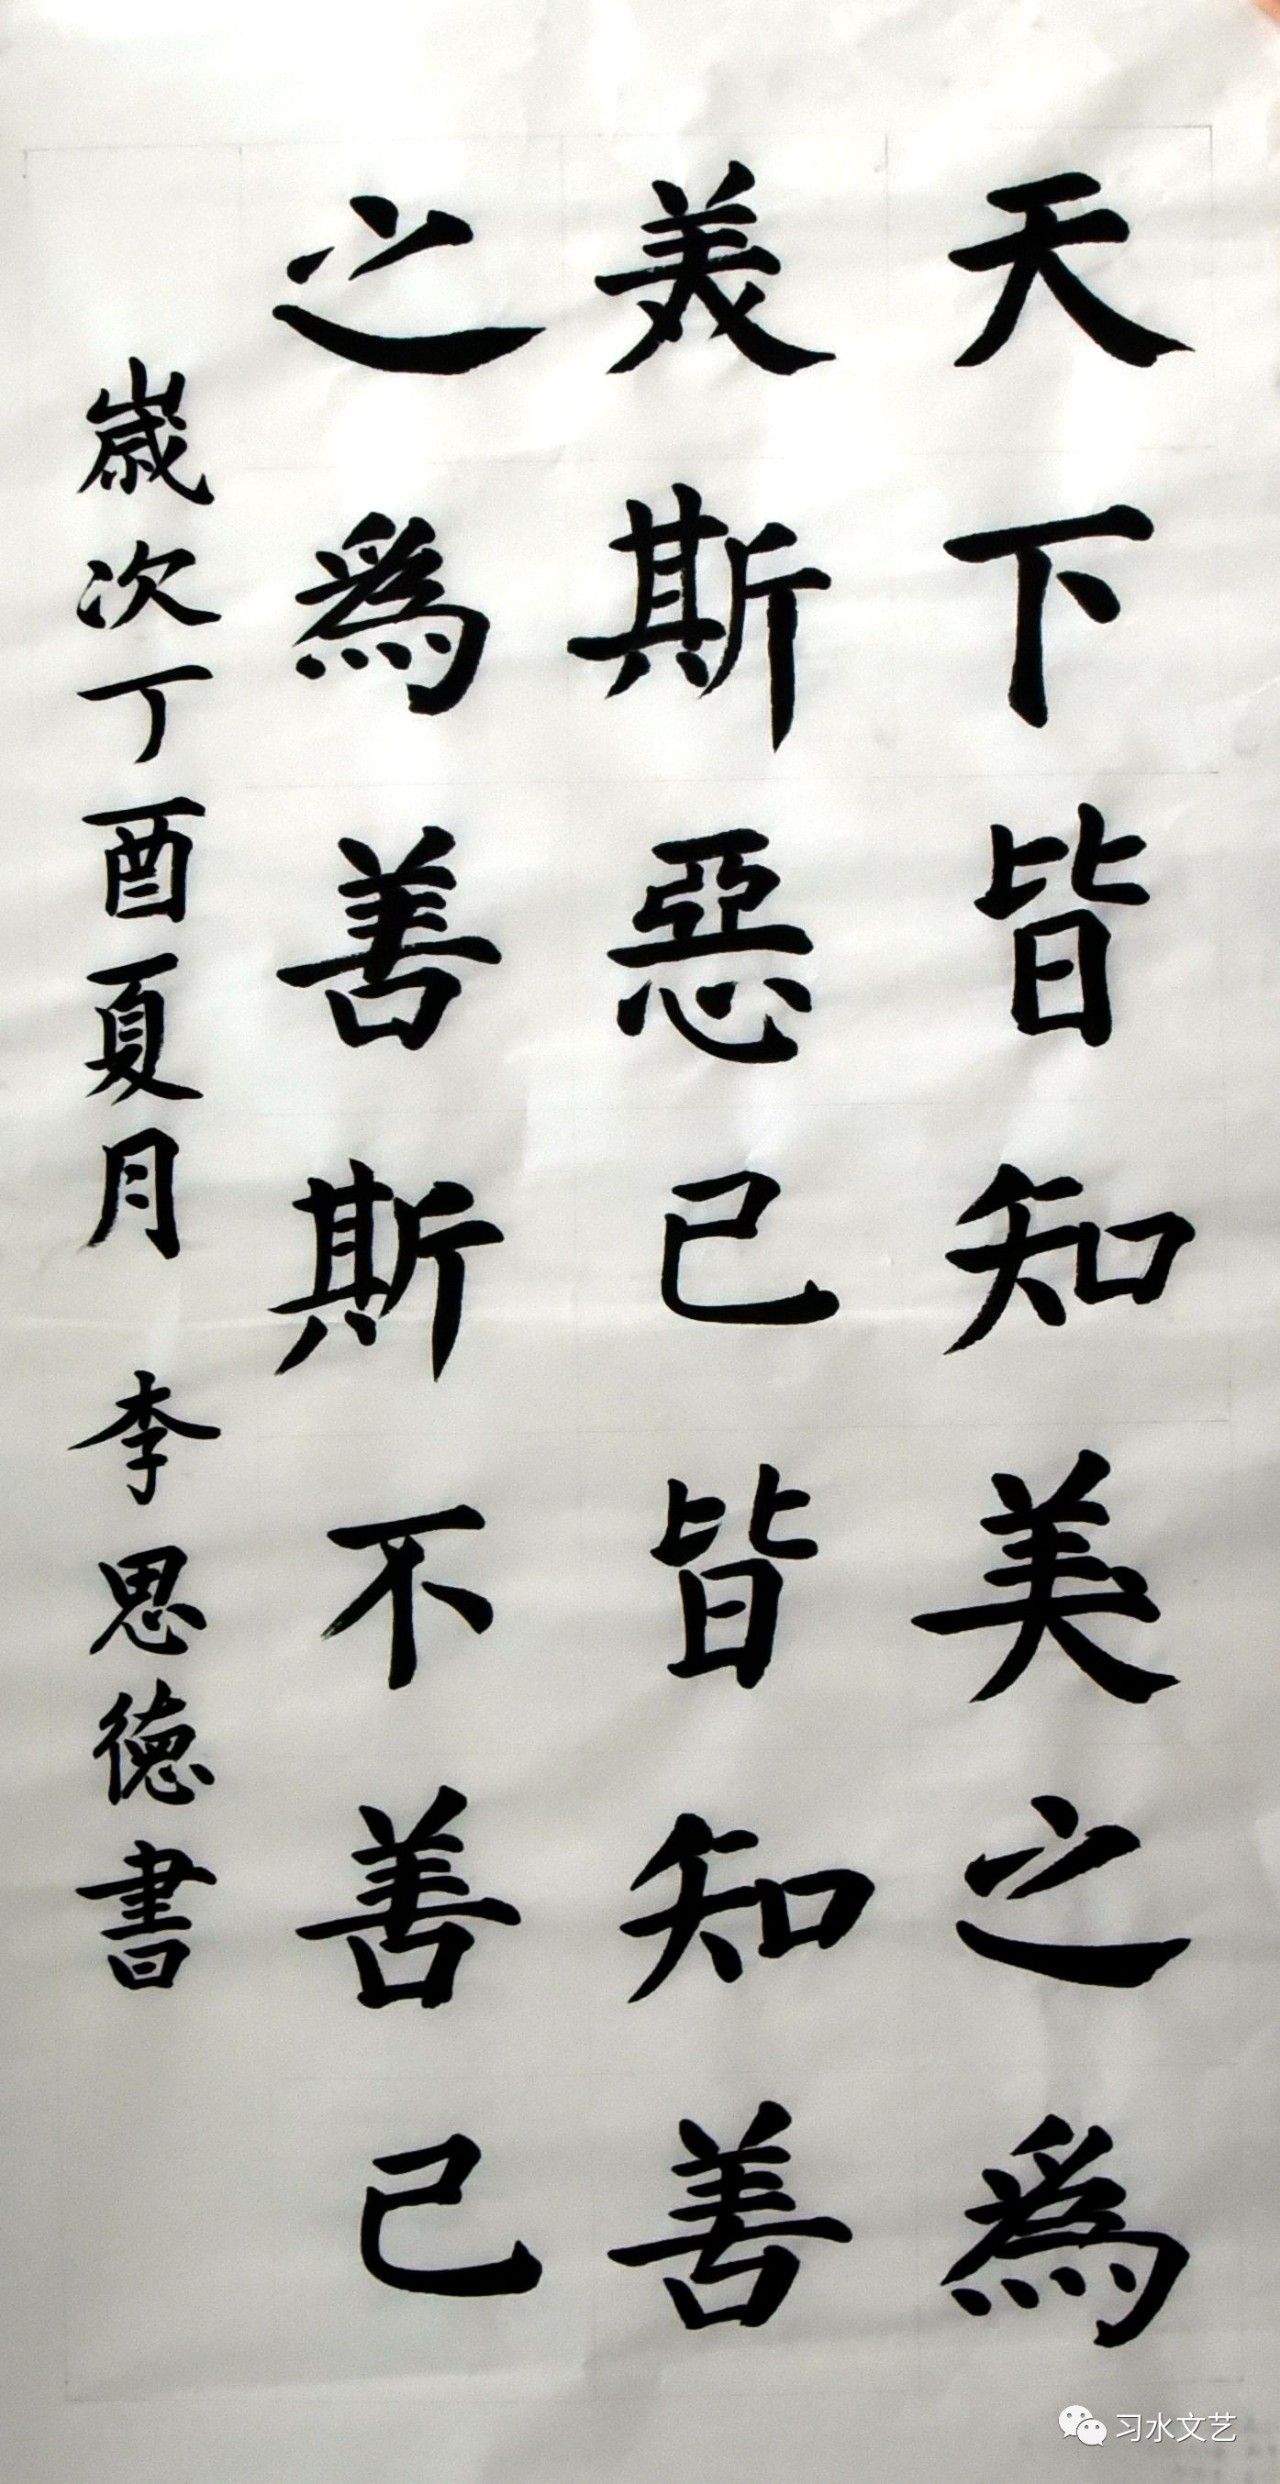 天下皆知美之為
美斯惡已皆知善
之為善斯不善已
歲次丁酉夏月 李思德書
习水文艺